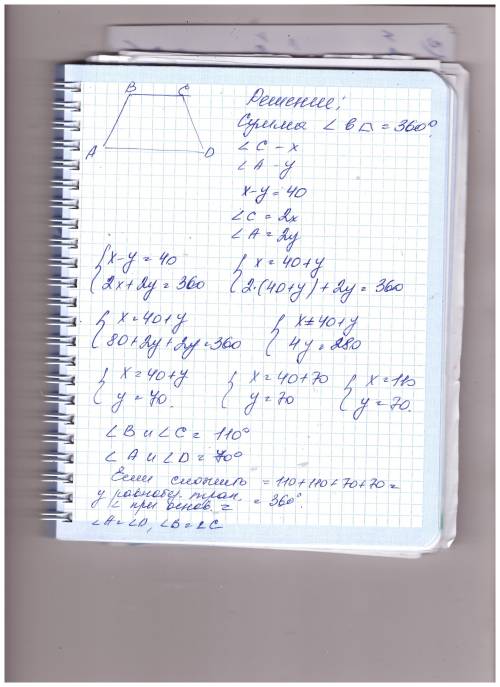 B C
A D
Решение:
Сумма ∠ в ⏢ = 360°.
∠C – x
∠A – y
x–y=40
∠C = 2x
∠A = 2y
{ x–y=40
2x+2y=360
{ x=40+y
2·(40+y)+2y=360
{ x=40+y
80+2y+2y=360
{ x=40+y
4y=280
{ x=40+y
y=70.
{ x=40+70
y=70
{ x=110
y=70.
∠B и ∠C = 110°
∠A и ∠D = 70°
Если сложить = 110+110+70+70=
у равнобед. трап. = 360°.
∠ при основ. =
∠A=∠D, ∠B=∠C